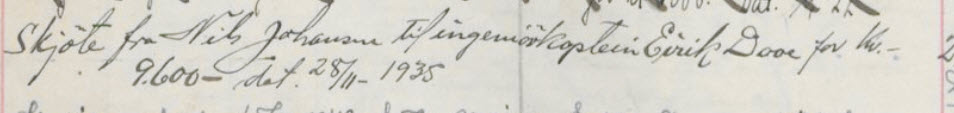 Skjöte fra Nils Johansen til ingeniörkaptein Eirik Dooe for kr.-
9.600- dat. 28/11- 1935